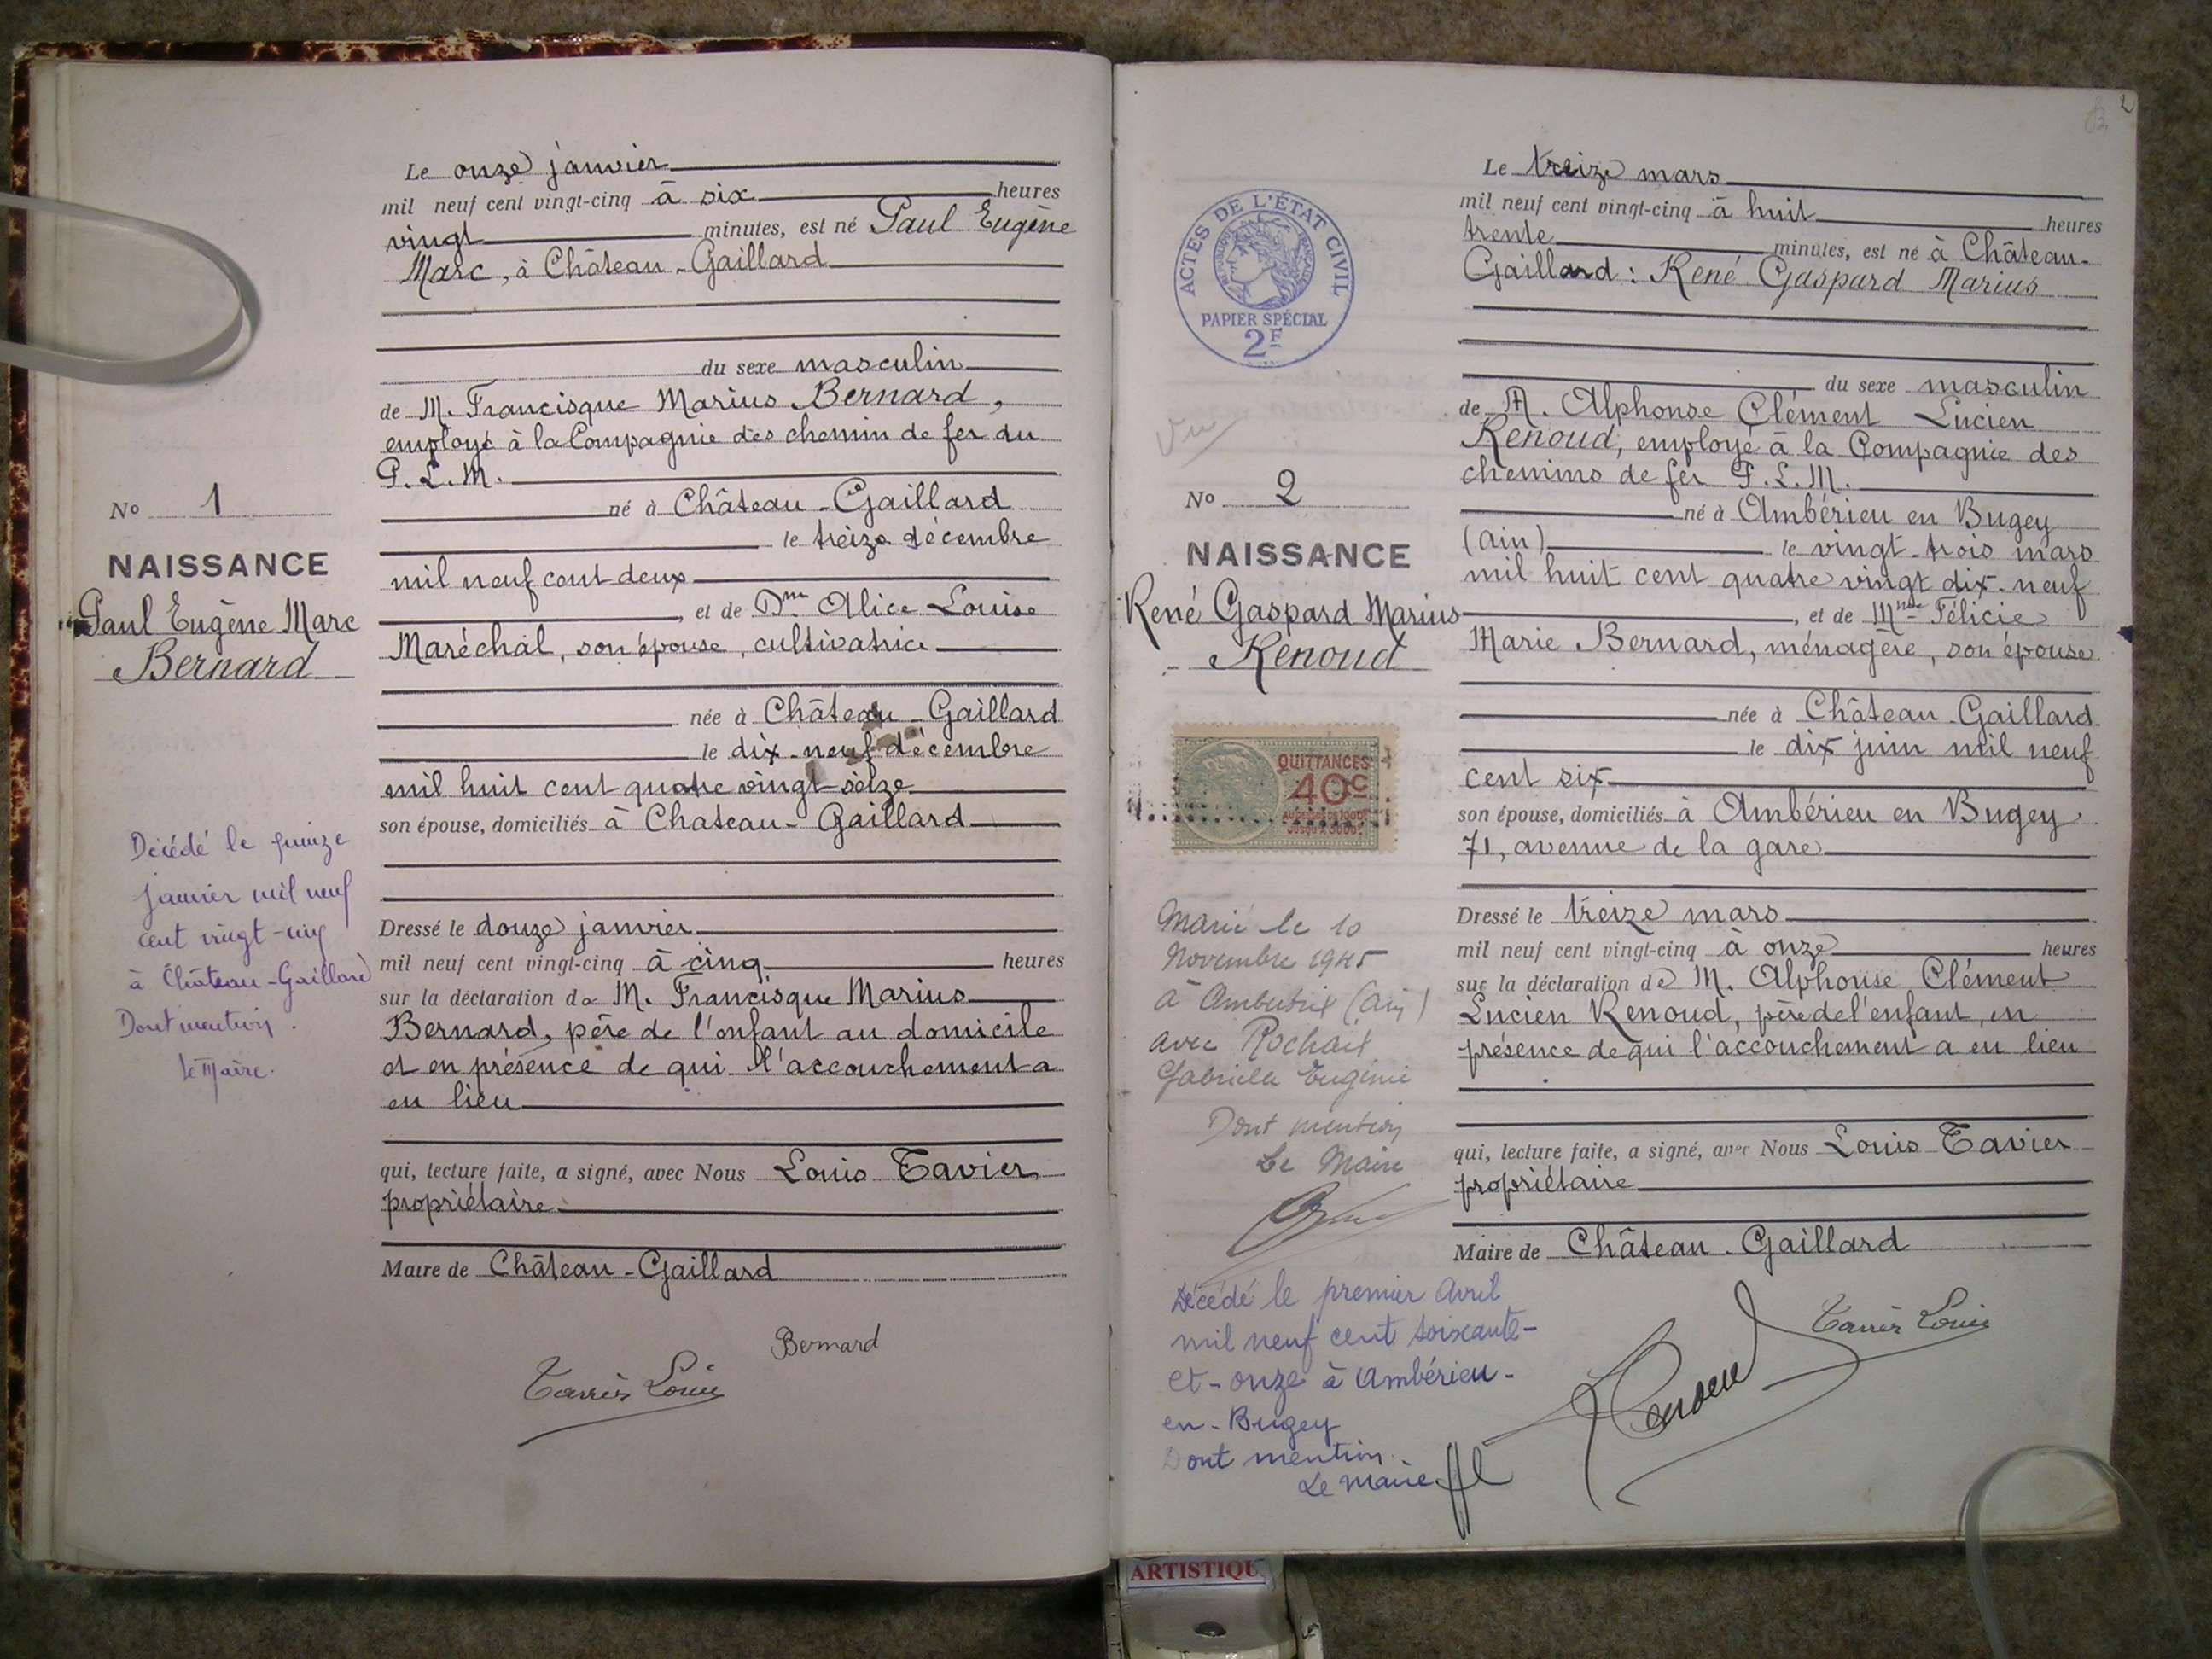 Le onze janvier
mil neuf cent vingt-cinq à six heures
vingt minutes, est né Paul Eugène
Marc, à Château-Gaillard
du sexe masculin
de M. Francisque Marius Bernard,
employé à la Compagnie des chemin de fer du
P.L.M.
né à Château-Gaillard
le treize décembre
mil neuf cent deux
, et de Dme Alice Louise
Maréchal, son épouse, cultivatrice
née à Château-Gaillard
le dix-neuf décembre
mil huit cent quatre vingt seize
son épouse, domiciliés à Chateau-Gaillard
Dressé le douze janvier
mil neuf cent vingt-cinq à cinq heures
sur la déclaration de M. Francisque Marius
Bernard, père de l'enfant au domicile
et en présence de qui l'accouchement a
eu lieu
qui, lecture faite, a signé, avec Nous Louis Tavier
propriétaire
Maire de Château-Gaillard
Bernard
Tavier Louis
No 1
NAISSANCE
Paul Eugène Marc
Bernard
Décédé le quinze
janvier mil neuf
cent vingt-cinq
à Château-Gaillard
Dont mention.
Le Maire.
2
ACTES DE L'ÉTAT CIVIL
PAPIER SPÉCIAL
2F
Vu
No 2
NAISSANCE
René Gaspard Marius
Renoud
QUITTANCES
40c
Marié le 10
Novembre 1945
à Ambutrix (Ain)
avec Rochait
Gabrielle Eugénie
Dont mention
Le Maire
Décédé le premier Avril
mil neuf cent soixante-
et-onze à Ambérieu-
en-Bugey
Dont mention.
Le Maire
Le treize mars
mil neuf cent vingt-cinq à huit heures
trente minutes, est né à Château-
Gaillard : René Gaspard Marius
du sexe masculin
de M. Alphonse Clément Lucien
Renoud, employé à la Compagnie des
chemins de fer P.L.M.
né à Ambérieu en Bugey
(Ain) le vingt-trois mars
mil huit cent quatre vingt dix-neuf
, et de Mme Félicie
Marie Bernard, ménagère, son épouse
née à Château-Gaillard
le dix juin mil neuf
cent six
son épouse, domiciliés à Ambérieu en Bugey
71, avenue de la gare
Dressé le treize mars
mil neuf cent vingt-cinq à onze heures
sur la déclaration de M. Alphonse Clément
Lucien Renoud, père de l'enfant, en
présence de qui l'accouchement a eu lieu
qui, lecture faite, a signé, avec Nous Louis Tavier
propriétaire
Maire de Château-Gaillard
Tavier Louis
Renoud
ARTISTIQU